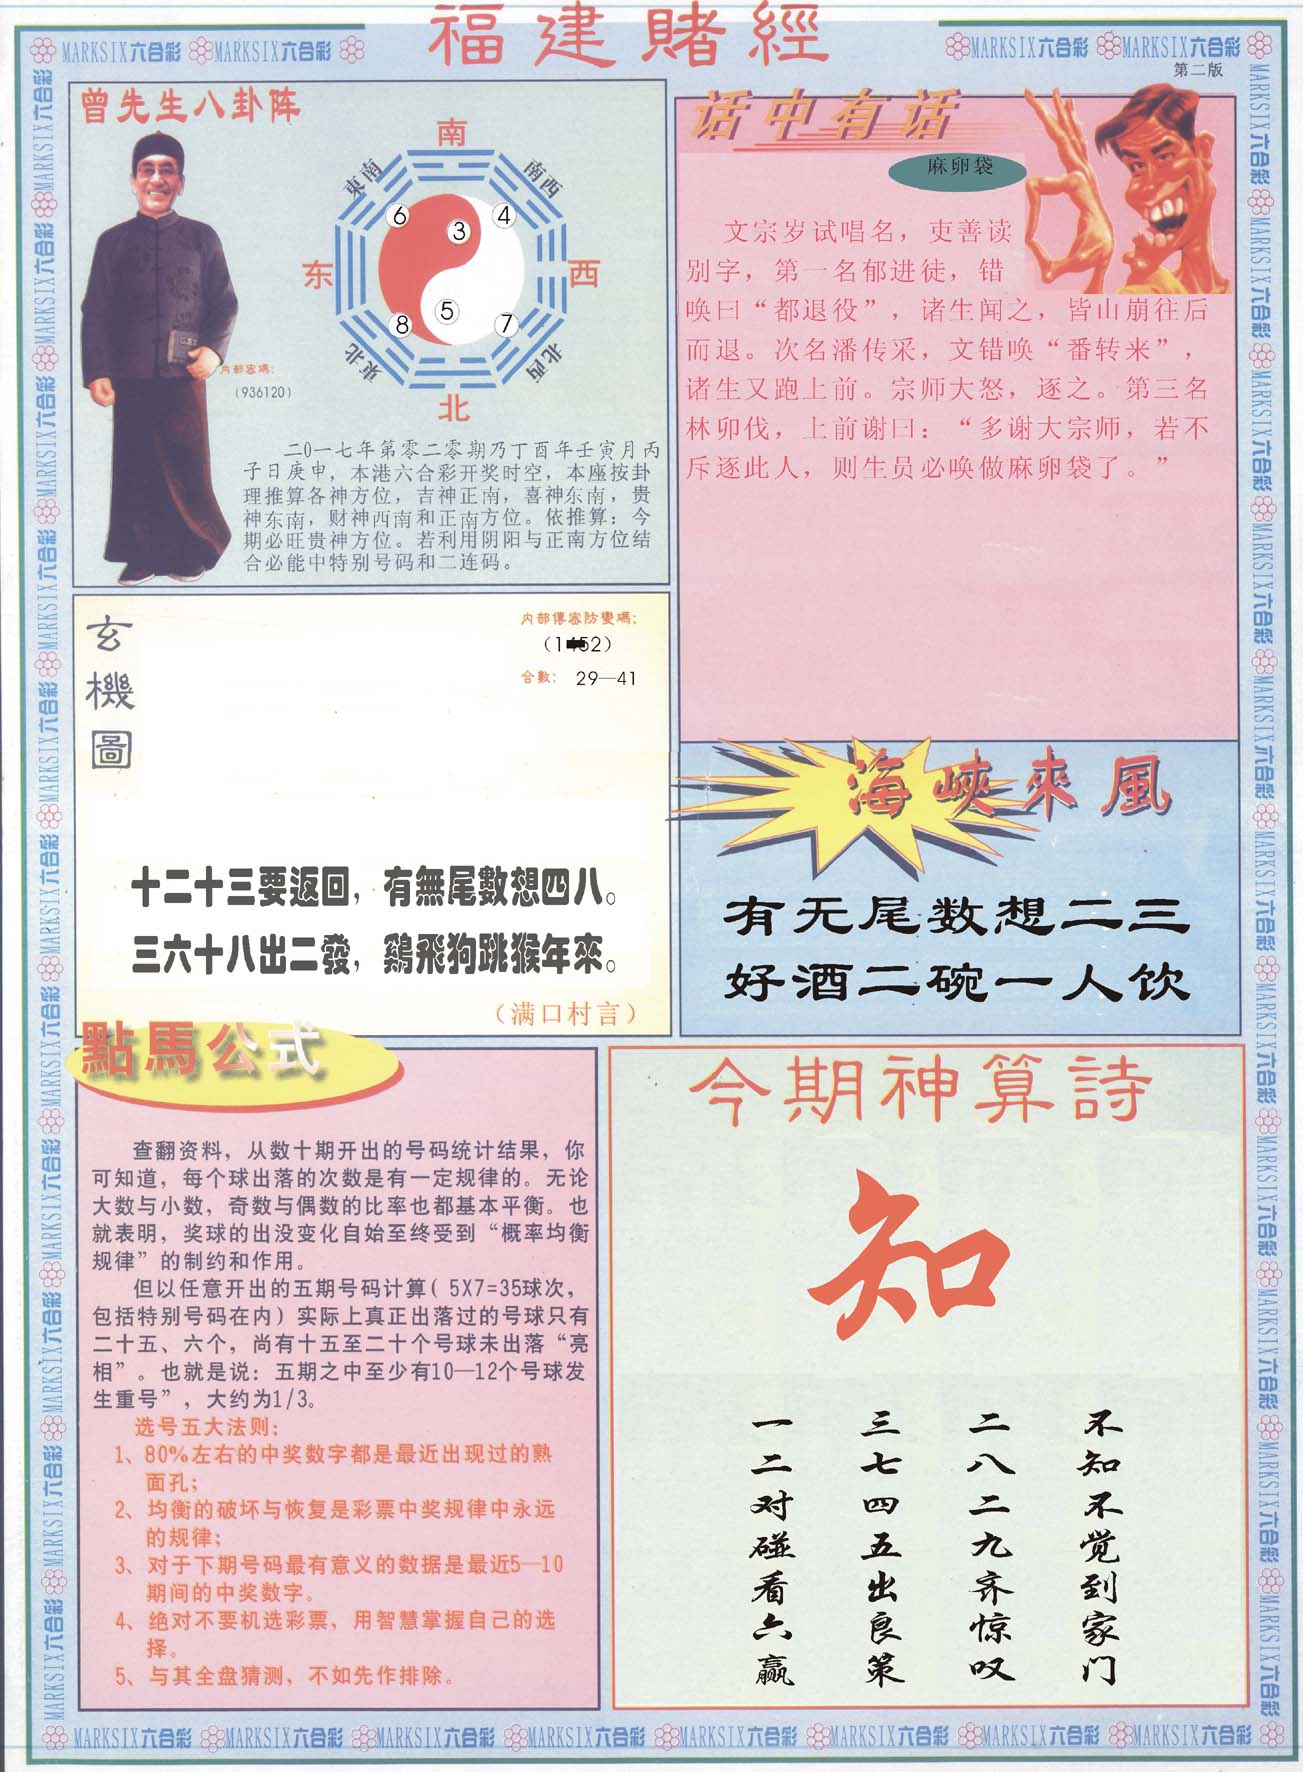 福建賭經
MARKSIX六合彩 MARKSIX六合彩
MARKSIX六合彩 MARKSIX六合彩
第二版
曾先生八卦阵
南
東南
南西
6
3
4
东
西
5
8
7
東北
北西
北
内部密碼：
（936120）
二0一七年第零二零期乃丁酉年壬寅月丙
子日庚申，本港六合彩开奖时空，本座按卦
理推算各神方位，吉神正南，喜神东南，贵
神东南，财神西南和正南方位。依推算：今
期必旺贵神方位。若利用阴阳与正南方位结
合必能中特别号码和二连码。
话中有话
麻卵袋
文宗岁试唱名，吏善读
别字，第一名郁进徒，错
唤曰“都退役”，诸生闻之，皆山崩往后
而退。次名潘传采，文错唤“番转来”，
诸生又跑上前。宗师大怒，逐之。第三名
林卯伐，上前谢曰：“多谢大宗师，若不
斥逐此人，则生员必唤做麻卵袋了。”
玄機圖
内部傳密防變碼：
合數： 29—41
十二十三要返回，有無尾數想四八。
三六十八出二發，鷄飛狗跳猴年來。
（满口村言）
海峽來風
有无尾数想二三
好酒二碗一人饮
點馬公式
查翻资料，从数十期开出的号码统计结果，你
可知道，每个球出落的次数是有一定规律的。无论
大数与小数，奇数与偶数的比率也都基本平衡。也
就表明，奖球的出没变化自始至终受到“概率均衡
规律”的制约和作用。
但以任意开出的五期号码计算（5X7=35球次，
包括特别号码在内）实际上真正出落过的号球只有
二十五、六个，尚有十五至二十个号球未出落“亮
相”。也就是说：五期之中至少有10—12个号球发
生重号”，大约为1/3。
选号五大法则：
1、80%左右的中奖数字都是最近出现过的熟
面孔；
2、均衡的破坏与恢复是彩票中奖规律中永远
的规律；
3、对于下期号码最有意义的数据是最近5—10
期间的中奖数字。
4、绝对不要机选彩票，用智慧掌握自己的选
择。
5、与其全盘猜测，不如先作排除。
今期神算詩
知
不知不觉到家门
二八二九齐惊叹
三七四五出良策
一二对碰看六赢
MARKSIX六合彩 MARKSIX六合彩 MARKSIX六合彩 MARKSIX六合彩 MARKSIX六合彩 MARKSIX六合彩 MARKSIX六合彩 MARKSIX六合彩